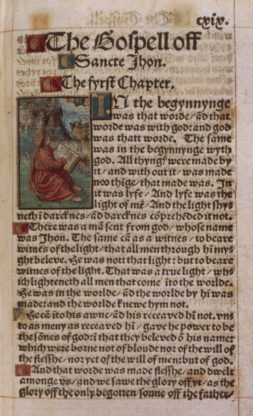 cxix.
The Gospell off
Sancte Jhon.
The fyrst Chapter.
IN the begynnynge
was that worde / ād that
worde was with god: and god
was thatt worde. The same
was in the begynnynge wyth
god. All thyngs were made by
it / and with out it / was made
noo thīge / that made was. In
it was lyfe / And lyfe was the
light of mē / And the light shy-
neth ī darcknes / ād darcknes cōprehēded it not.
There was a mā sent from god / whose name
was Jhon. The same cā as a witnes / to beare
witnes of the light / that all men through hī my-
ght beleve. He was nott that light: but to beare
witnes of the light. That was a true light / whi-
ch lighteneth all men that come īto the worlde.
He was in the worlde / ād the worlde by hī was
made: and the worlde knewe hym not.
He cā īto his awne / ād his receaved hī not. vn-
to as meny as receaved hī / gave he power to be
the sōnes of god: ī that they beleved ō his name:
which were borne not of bloude nor of the will of
the flesshe / nor yet of the will of men: but of god.
And that worde was made flesshe / and dwelt
amonge vs / and we sawe the glory off yt / as the
glory off the only begotten sonne off the father